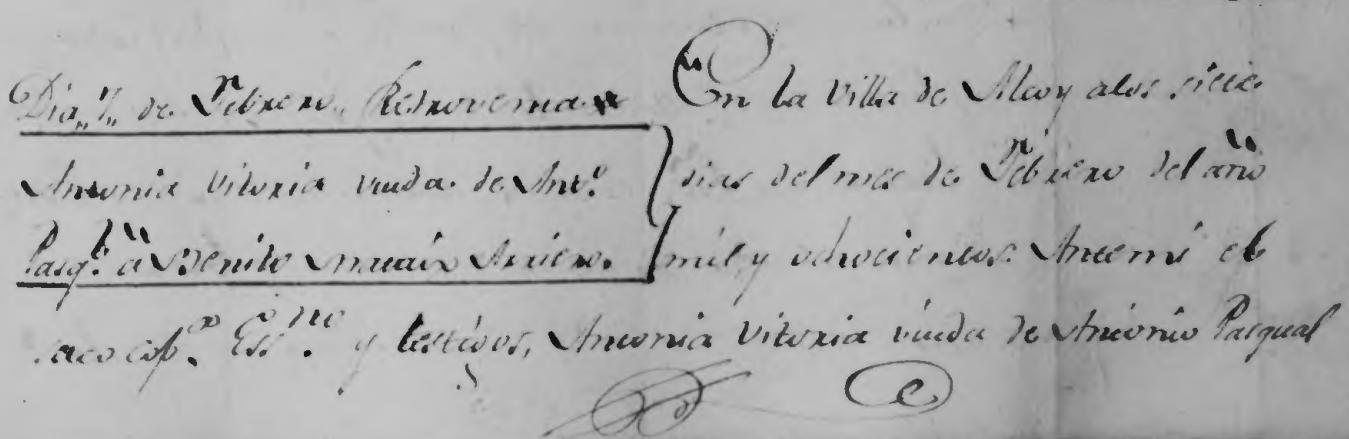 Dia,, 7,, de Febrero. Retroventa
Antonia Vitoria viuda de Ant.º
Pasq.l á Benito Arriero.
En la Villa de Alcoy alos siete
dias del mes de Febrero del año
mil y ochocientos: Antemi el
Ess.no y testigos, Antonia Vitoria viuda de Antonio Pasqual